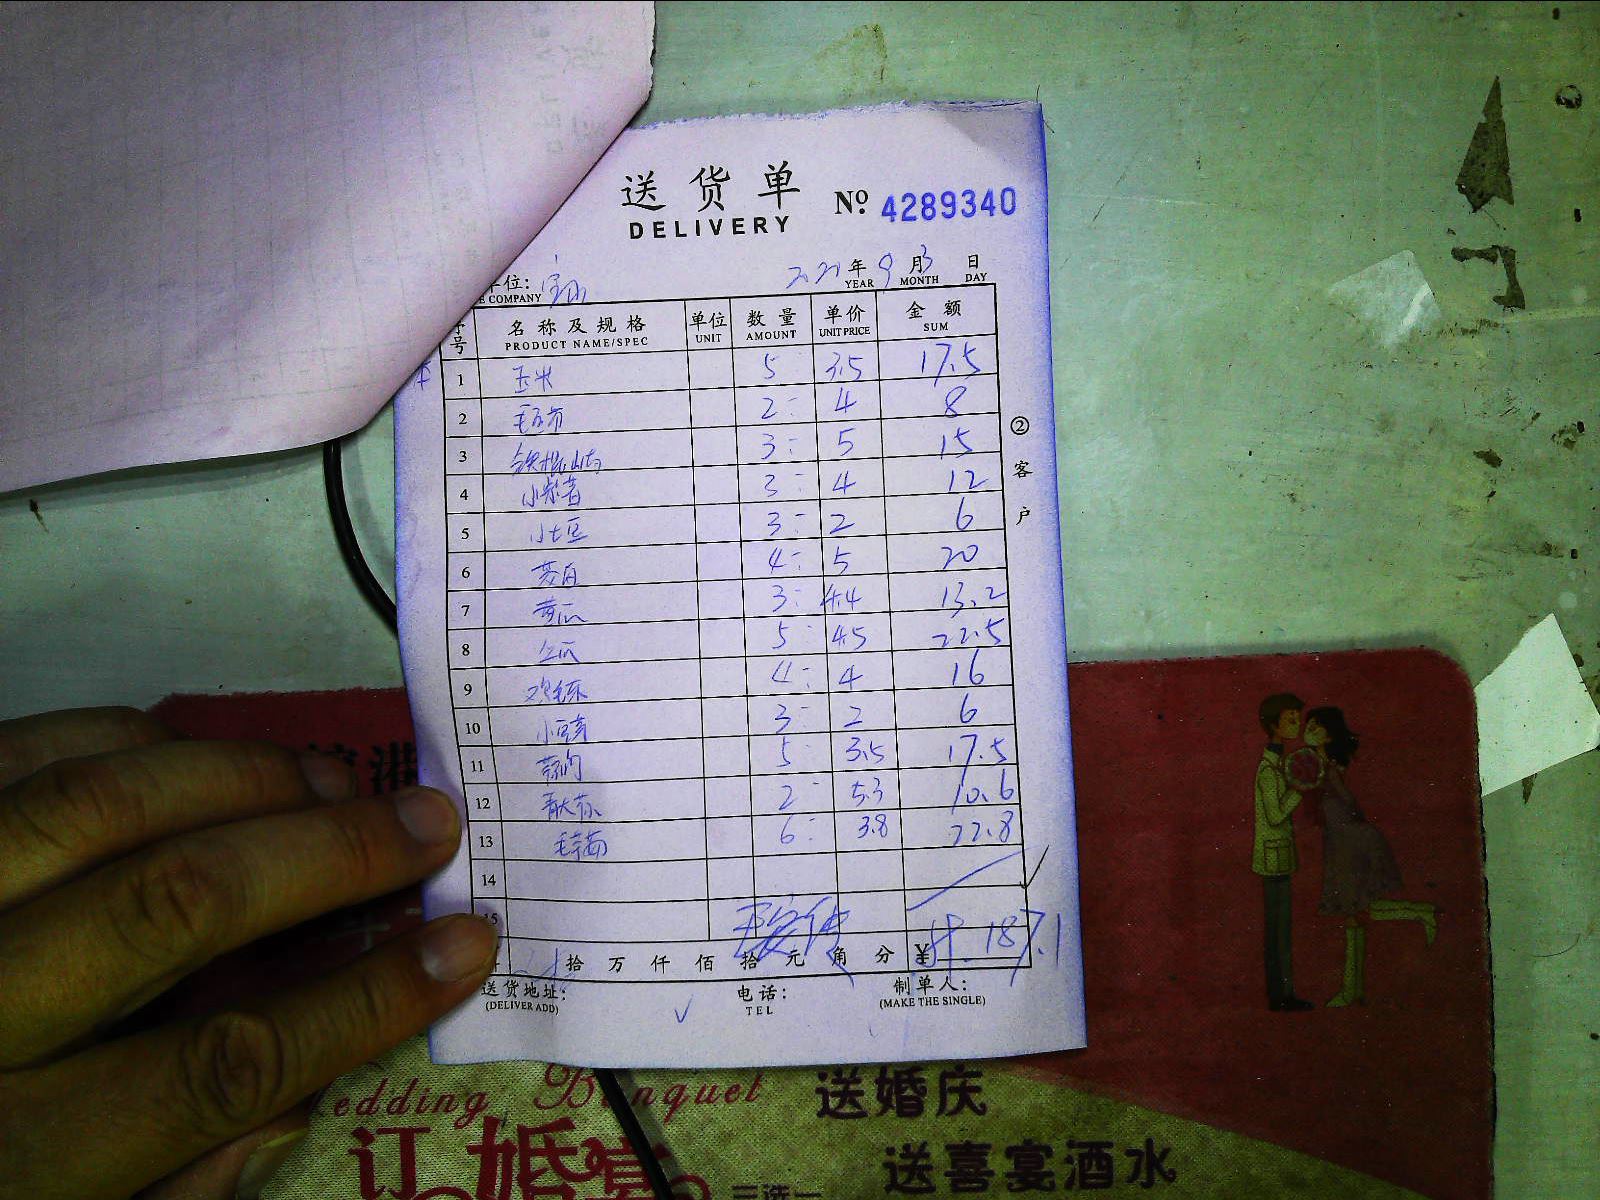 送货单 No. 4289340
DELIVERY
单位: 2021年 9月 3日
E COMPANY YEAR MONTH DAY
号 名称及规格 单位 数量 单价 金额
PRODUCT NAME/SPEC UNIT AMOUNT UNIT PRICE SUM
1 玉米 5 3.5 17.5
2 毛豆节 2 4 8
3 铁棍山药 3 5 15
4 小紫薯 3 4 12
5 小土豆 3 2 6
6 茭白 4 5 20
7 黄瓜 3 4.4 13.2
8 5 4.5 22.5
9 4 4 16
10 3 2 6
11 5 3.5 17.5
12 2 5.3 10.6
13 6 3.8 22.8
14
15
拾万仟佰拾元角分 ¥ 187.1
送货地址: 电话: 制单人:
(DELIVER ADD) TEL (MAKE THE SINGLE)
②客户
港
Wedding Banquet
送婚庆
订婚宴
送喜宴酒水
三选一